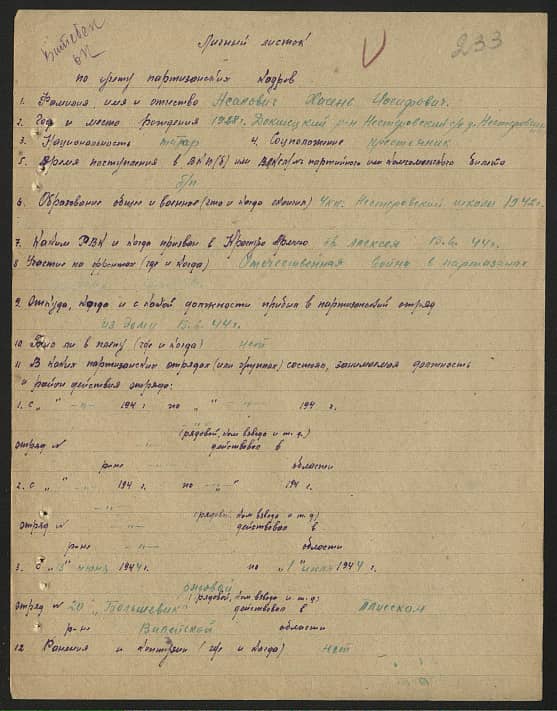 Витебск
233
Личный листок
по учету партизанских кадров
1. Фамилия имя и отчество Асанович Хасень Иосифович.
2. Год и место рождения 1928г. Докшицкий р-н Нестеровский с/с д. Нестеровщина
3. Национальность татар 4. Соцположение крестьянин
5. Время поступления в ВКП(б) или ВЛКСМ, № партийного или комсомольского билета
б/п
6. Образование общее и военное (что и когда окончил) 4кл. Нестеровский школы 1942г.
7. Каким РВК и когда призван в Красную Армию 13.6.44г.
8 Участие на фронтах (где и когда) Отечественная война в партизанах
9. Откуда, когда и с какой должности прибыл в партизанский отряд
из дому 15.6.44г.
10 Был ли в плену (где и когда) нет
11 В каких партизанских отрядах (или группах) состоял, занимаемая должность
и район действия отряда:
1. с „ “ -„- 194 г. по „ “ -„- 194 г.
(рядовой, ком взвода и т. д.)
отряд № действовал в
р-не области
2. с „ “ 194 г. по -„- 194 г.
(рядовой, ком взвода и т.д)
отряд № -„- действовал в
р-не -„- области
3. с „15“ июня 1944г. по „1“ июля 1944 г.
рядовой
(рядовой, ком взвода и т. д)
отряд № 20 „Большевик“ действовал в Плисском
р-не Вилейской области
12 Ранения и контузии (где и когда) нет